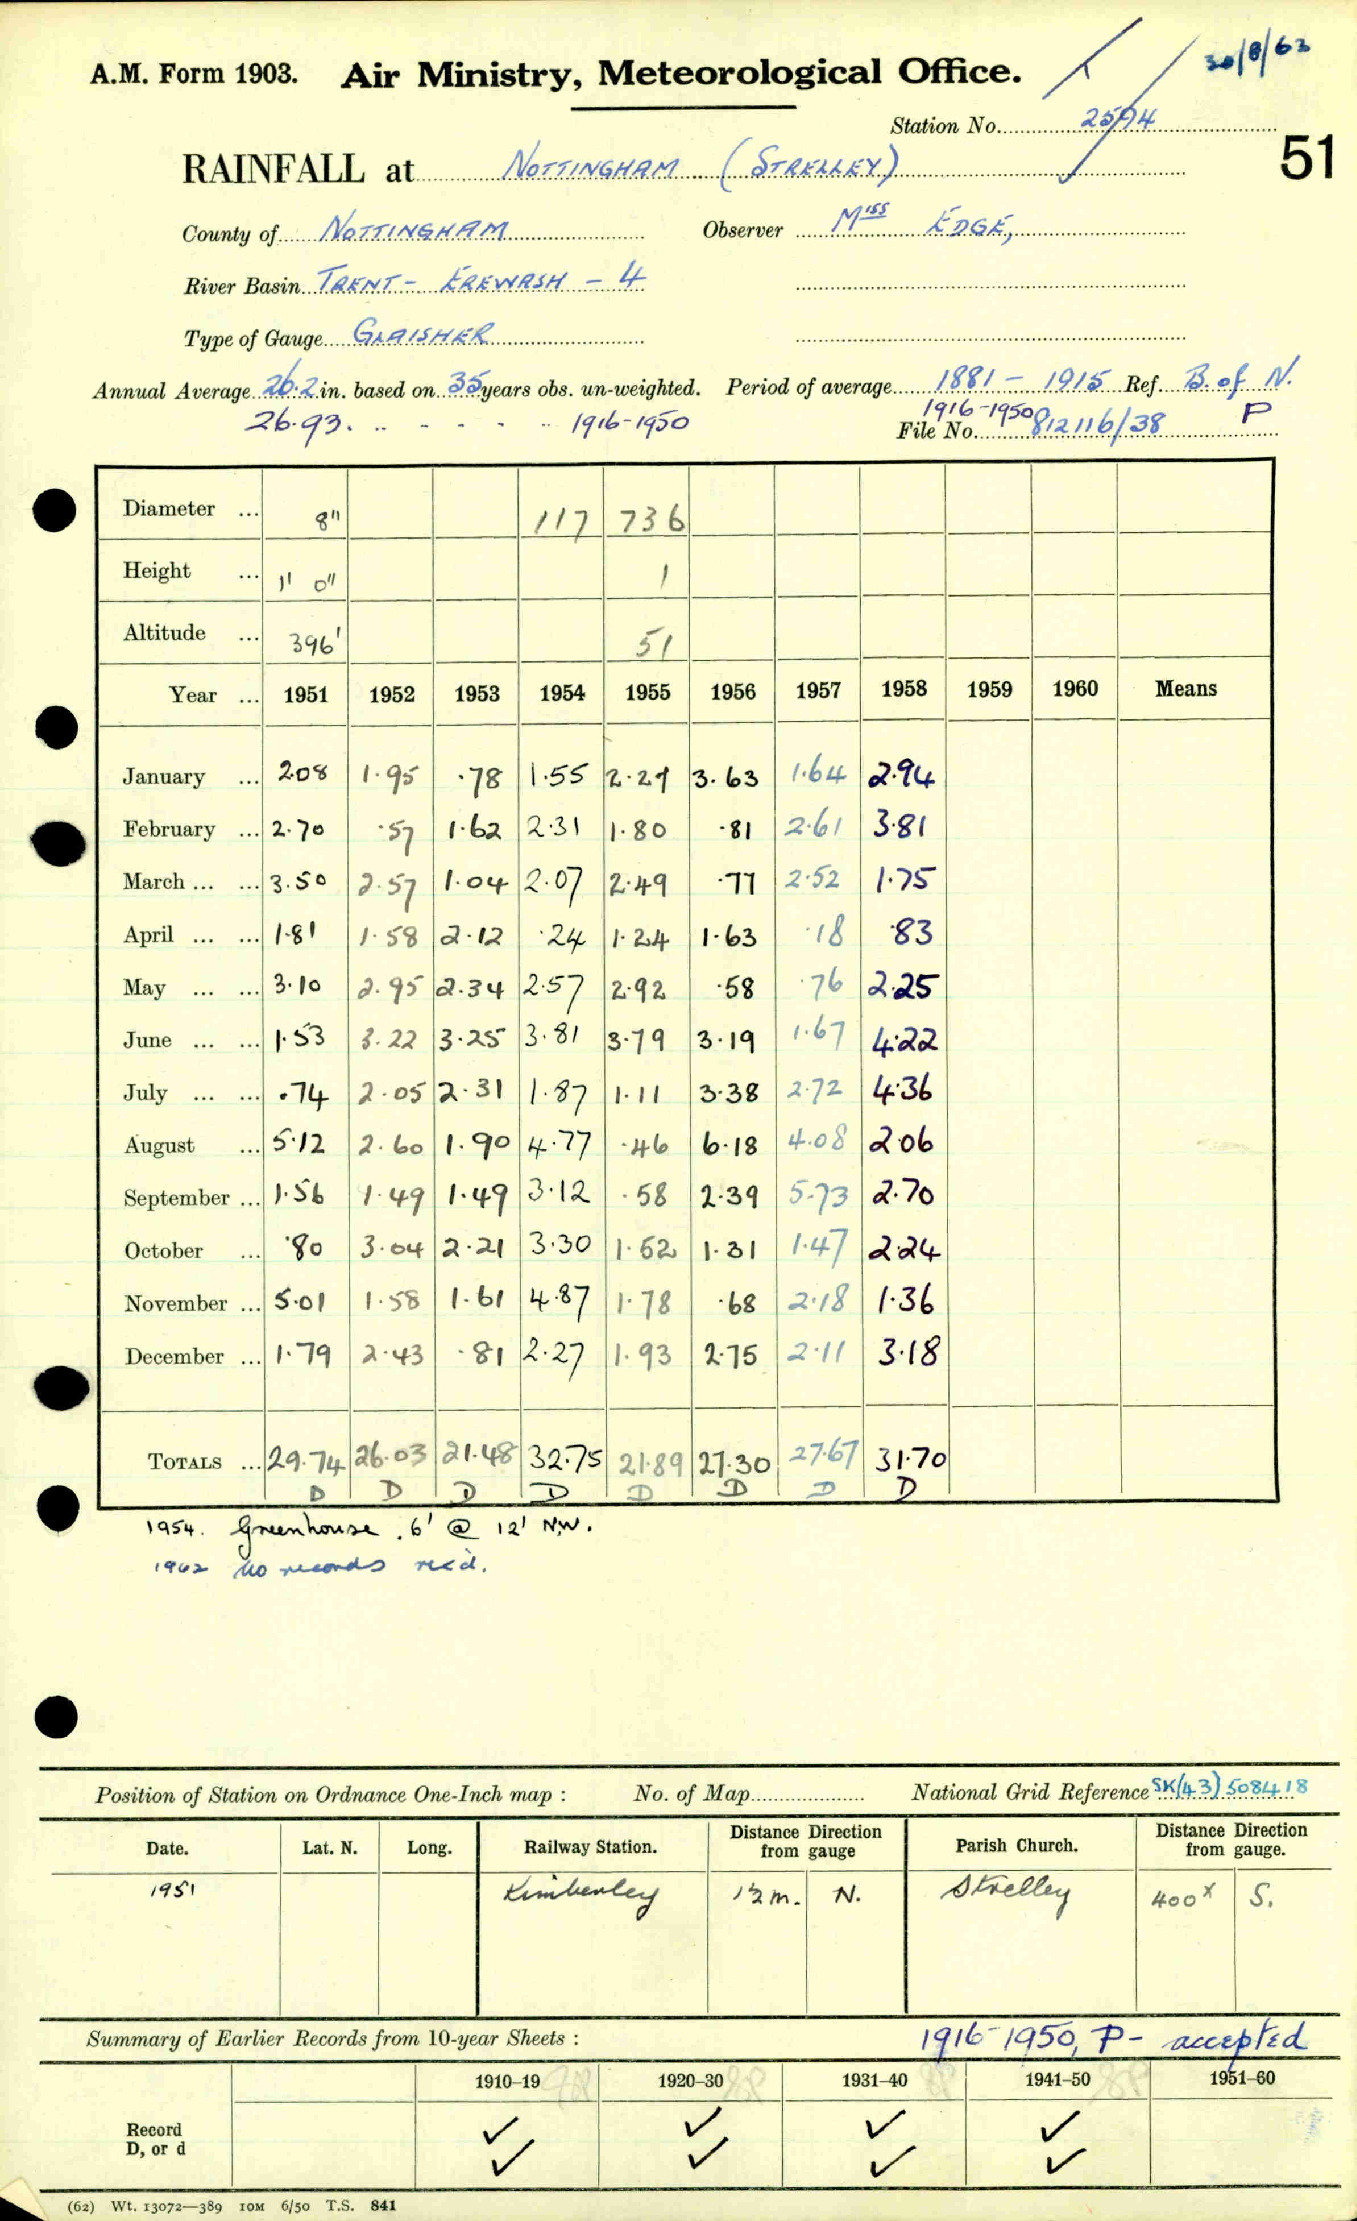 30/8/63
A.M. Form 1903. Air Ministry, Meteorological Office.
Station No. 2594
51
RAINFALL at NOTTINGHAM (STRELLEY)
County of NOTTINGHAM Observer Miss EDGE,
River Basin TRENT - EREWASH - 4
Type of Gauge GLAISHER
Annual Average 26.2 in. based on 35 years obs. un-weighted. Period of average 1881 - 1915 Ref. B. of N.
26.93. .. - - - .. 1916-1950 1916-1950 P
File No. 812116/38
Diameter ... 8" 117 736
Height ... 1' 0" 1
Altitude ... 396' 51
Year ... 1951 1952 1953 1954 1955 1956 1957 1958 1959 1960 Means
January ... 2.08 1.95 .78 1.55 2.27 3.63 1.64 2.94
February ... 2.70 .57 1.62 2.31 1.80 .81 2.61 3.81
March ... ... 3.50 2.57 1.04 2.07 2.49 .77 2.52 1.75
April ... ... 1.81 1.58 2.12 .24 1.24 1.63 .18 .83
May ... ... 3.10 2.95 2.34 2.57 2.92 .58 .76 2.25
June ... ... 1.53 3.22 3.25 3.81 3.79 3.19 1.67 4.22
July ... ... .74 2.05 2.31 1.87 1.11 3.38 2.72 4.36
August ... 5.12 2.60 1.90 4.77 .46 6.18 4.08 2.06
September ... 1.56 1.49 1.49 3.12 .58 2.39 5.73 2.70
October ... .80 3.04 2.21 3.30 1.52 1.31 1.47 2.24
November ... 5.01 1.58 1.61 4.87 1.78 .68 2.18 1.36
December ... 1.79 2.43 .81 2.27 1.93 2.75 2.11 3.18
TOTALS ... 29.74 26.03 21.48 32.75 21.89 27.30 27.67 31.70
D D D D D D D D
1954. Greenhouse. 6' @ 12' NW.
1962 No records rec'd.
Position of Station on Ordnance One-Inch map : No. of Map National Grid Reference SK(43)508418
Date. Lat. N. Long. Railway Station. Distance Direction from gauge Parish Church. Distance Direction from gauge.
1951 Kimberley 1½ m. N. Strelley 400x S.
Summary of Earlier Records from 10-year Sheets : 1916-1950, P - accepted
1910–19 1920–30 1931–40 1941–50 1951–60
Record ✓ ✓ ✓ ✓
D, or d ✓ ✓ ✓ ✓
(62) Wt. 13072—389 10M 6/50 T.S. 841